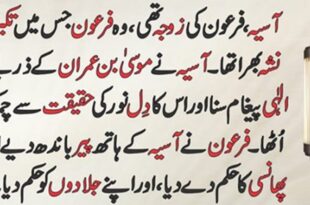 آسیہ، فرعون کی زوجہ تھی، وہ فرعون جس میں تکبر
نشہ بھرا تھا۔ آسیہ نے موسیٰ بن عمران کے ذریعے
الٰہی پیغام سنا اور اس کا دل نور کی حقیقت سے
اُٹھا۔ فرعون نے آسیہ کے ہاتھ پیر باندھ دیے
پھانسی کا حکم دے دیا، اور اپنے جلادوں کو حکم دیا